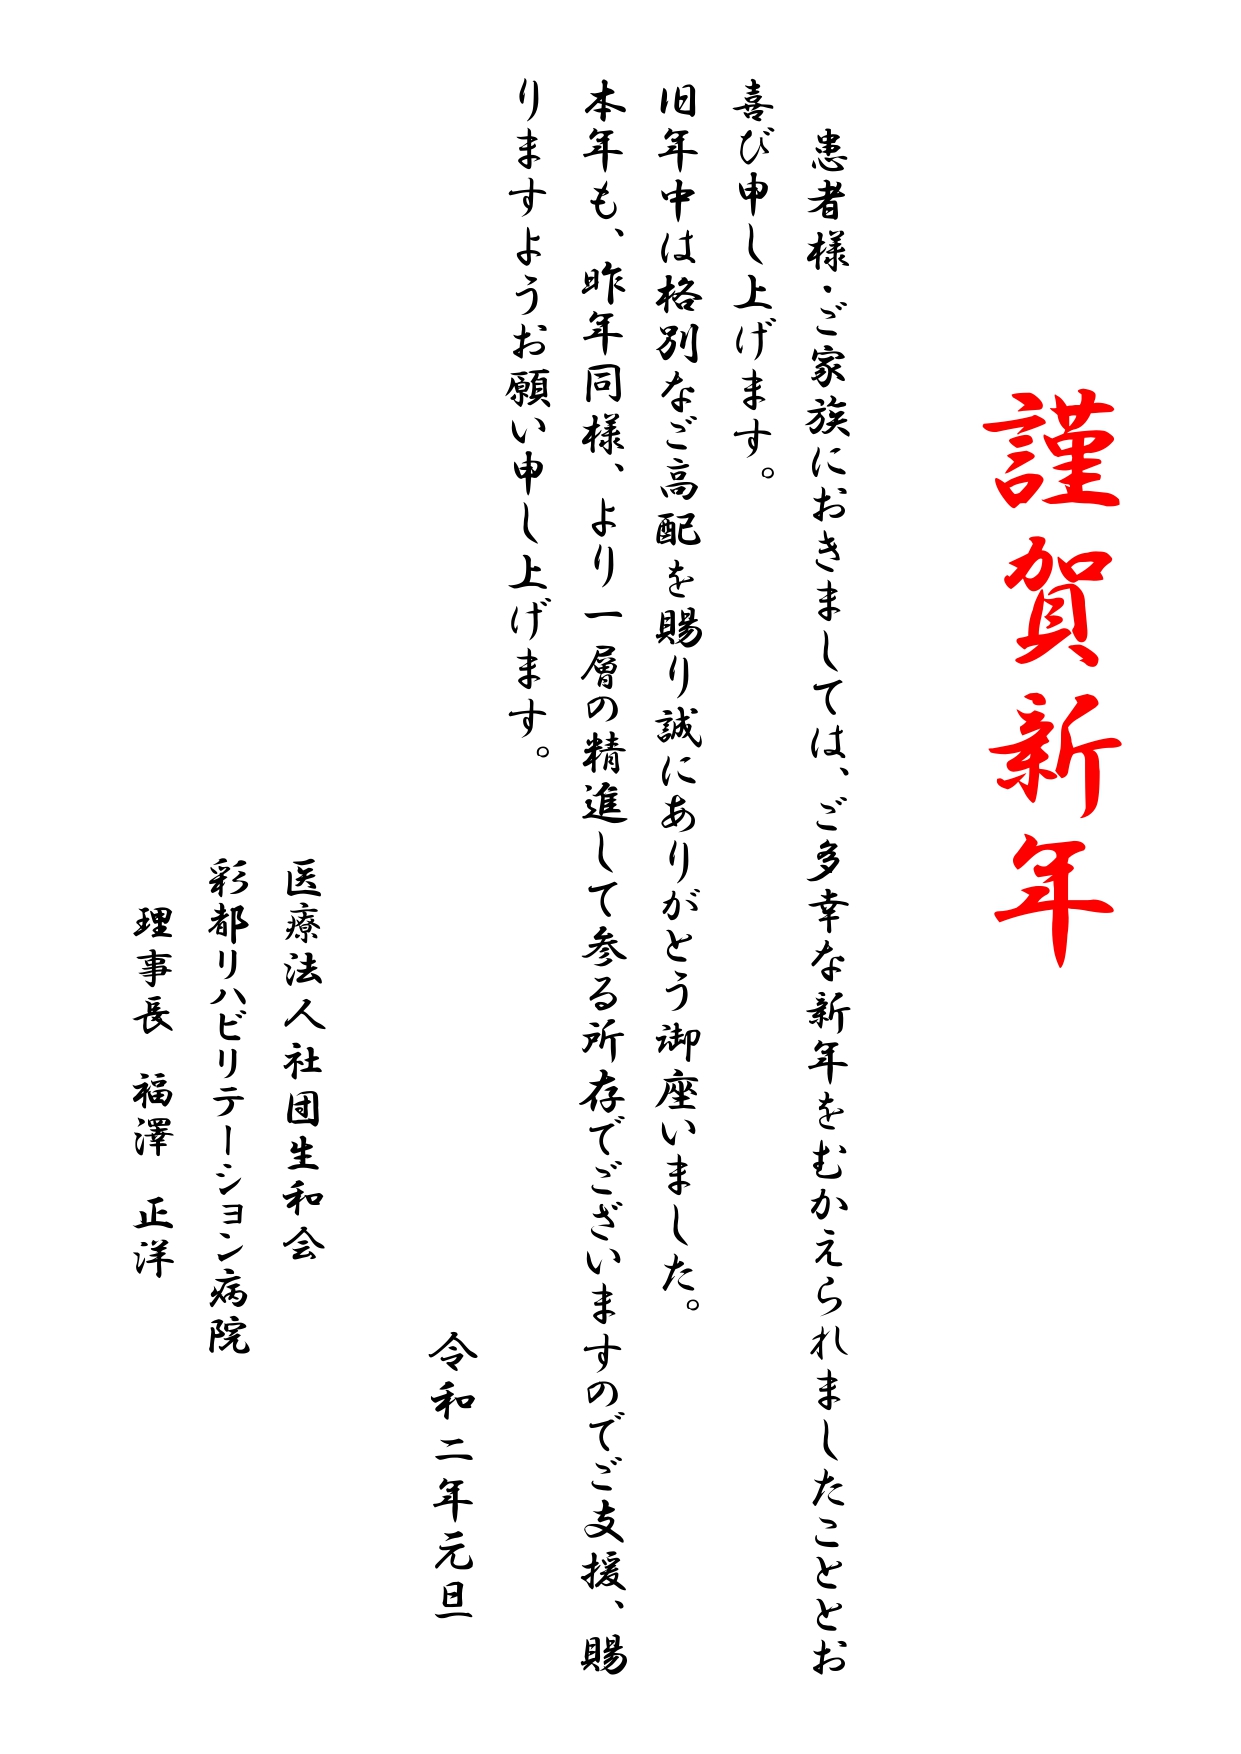 謹賀新年
患者様・ご家族におきましては、ご多幸な新年をむかえられましたこととお
喜び申し上げます。
旧年中は格別なご高配を賜り誠にありがとう御座いました。
本年も、昨年同様、より一層の精進して参る所存でございますのでご支援、賜
りますようお願い申し上げます。
令和二年元旦
医療法人社団生和会
彩都リハビリテーション病院
理事長　福澤　正洋